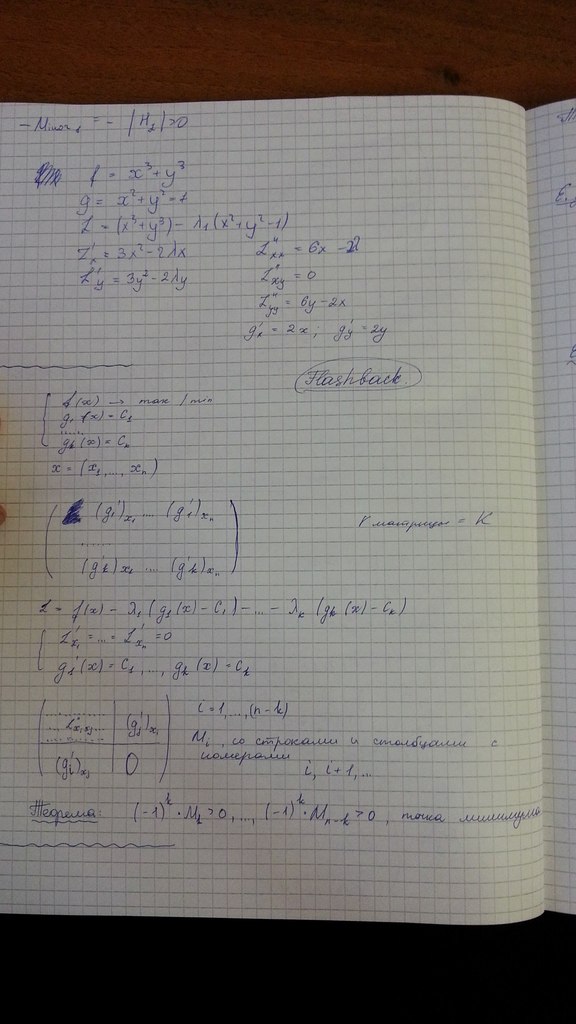 - Минор₁ = - |H₂| > 0
f = x³ + y³
g = x² + y² = 1
L = (x³ + y³) - λ₁(x² + y² - 1)
L'ₓ = 3x² - 2λx
L'y = 3y² - 2λy
L''ₓₓ = 6x - 2λ
L''ₓy = 0
L''yy = 6y - 2x
g'ₓ = 2x ; g'y = 2y
Flashback.
f(x) → max / min
g₁(x) = C₁
......
gk(x) = Cк
x = (x₁, ..., xₙ)
(g₁')x₁ .... (g₁')xₙ
......
(g'k)x₁ .... (g'k)xₙ
r матрицы = K
L = f(x) - λ₁(g₁(x) - C₁) - ... - λк (gk(x) - Cк)
L'x₁ = ... = L'xₙ = 0
g₁'(x) = C₁, ..., gk(x) = Ck
... L''xᵢxⱼ ... (g'ⱼ)xᵢ
(g'ᵢ)xⱼ 0
i = 1, ..., (n - k)
Mᵢ, со строками и столбцами с
номерами
i, i+1, ...
Теорема: (-1)ᵏ · M₁ > 0, ..., (-1)ᵏ · Mₙ₋ₖ > 0, точка минимума